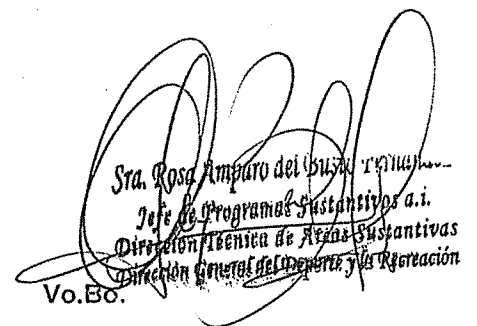 Sra. Rosa Amparo del
Jefe de Programas Sustantivos a.i.
Dirección Técnica de Areas Sustantivas
Dirección General del Deporte y la Recreación
Vo.Bo.